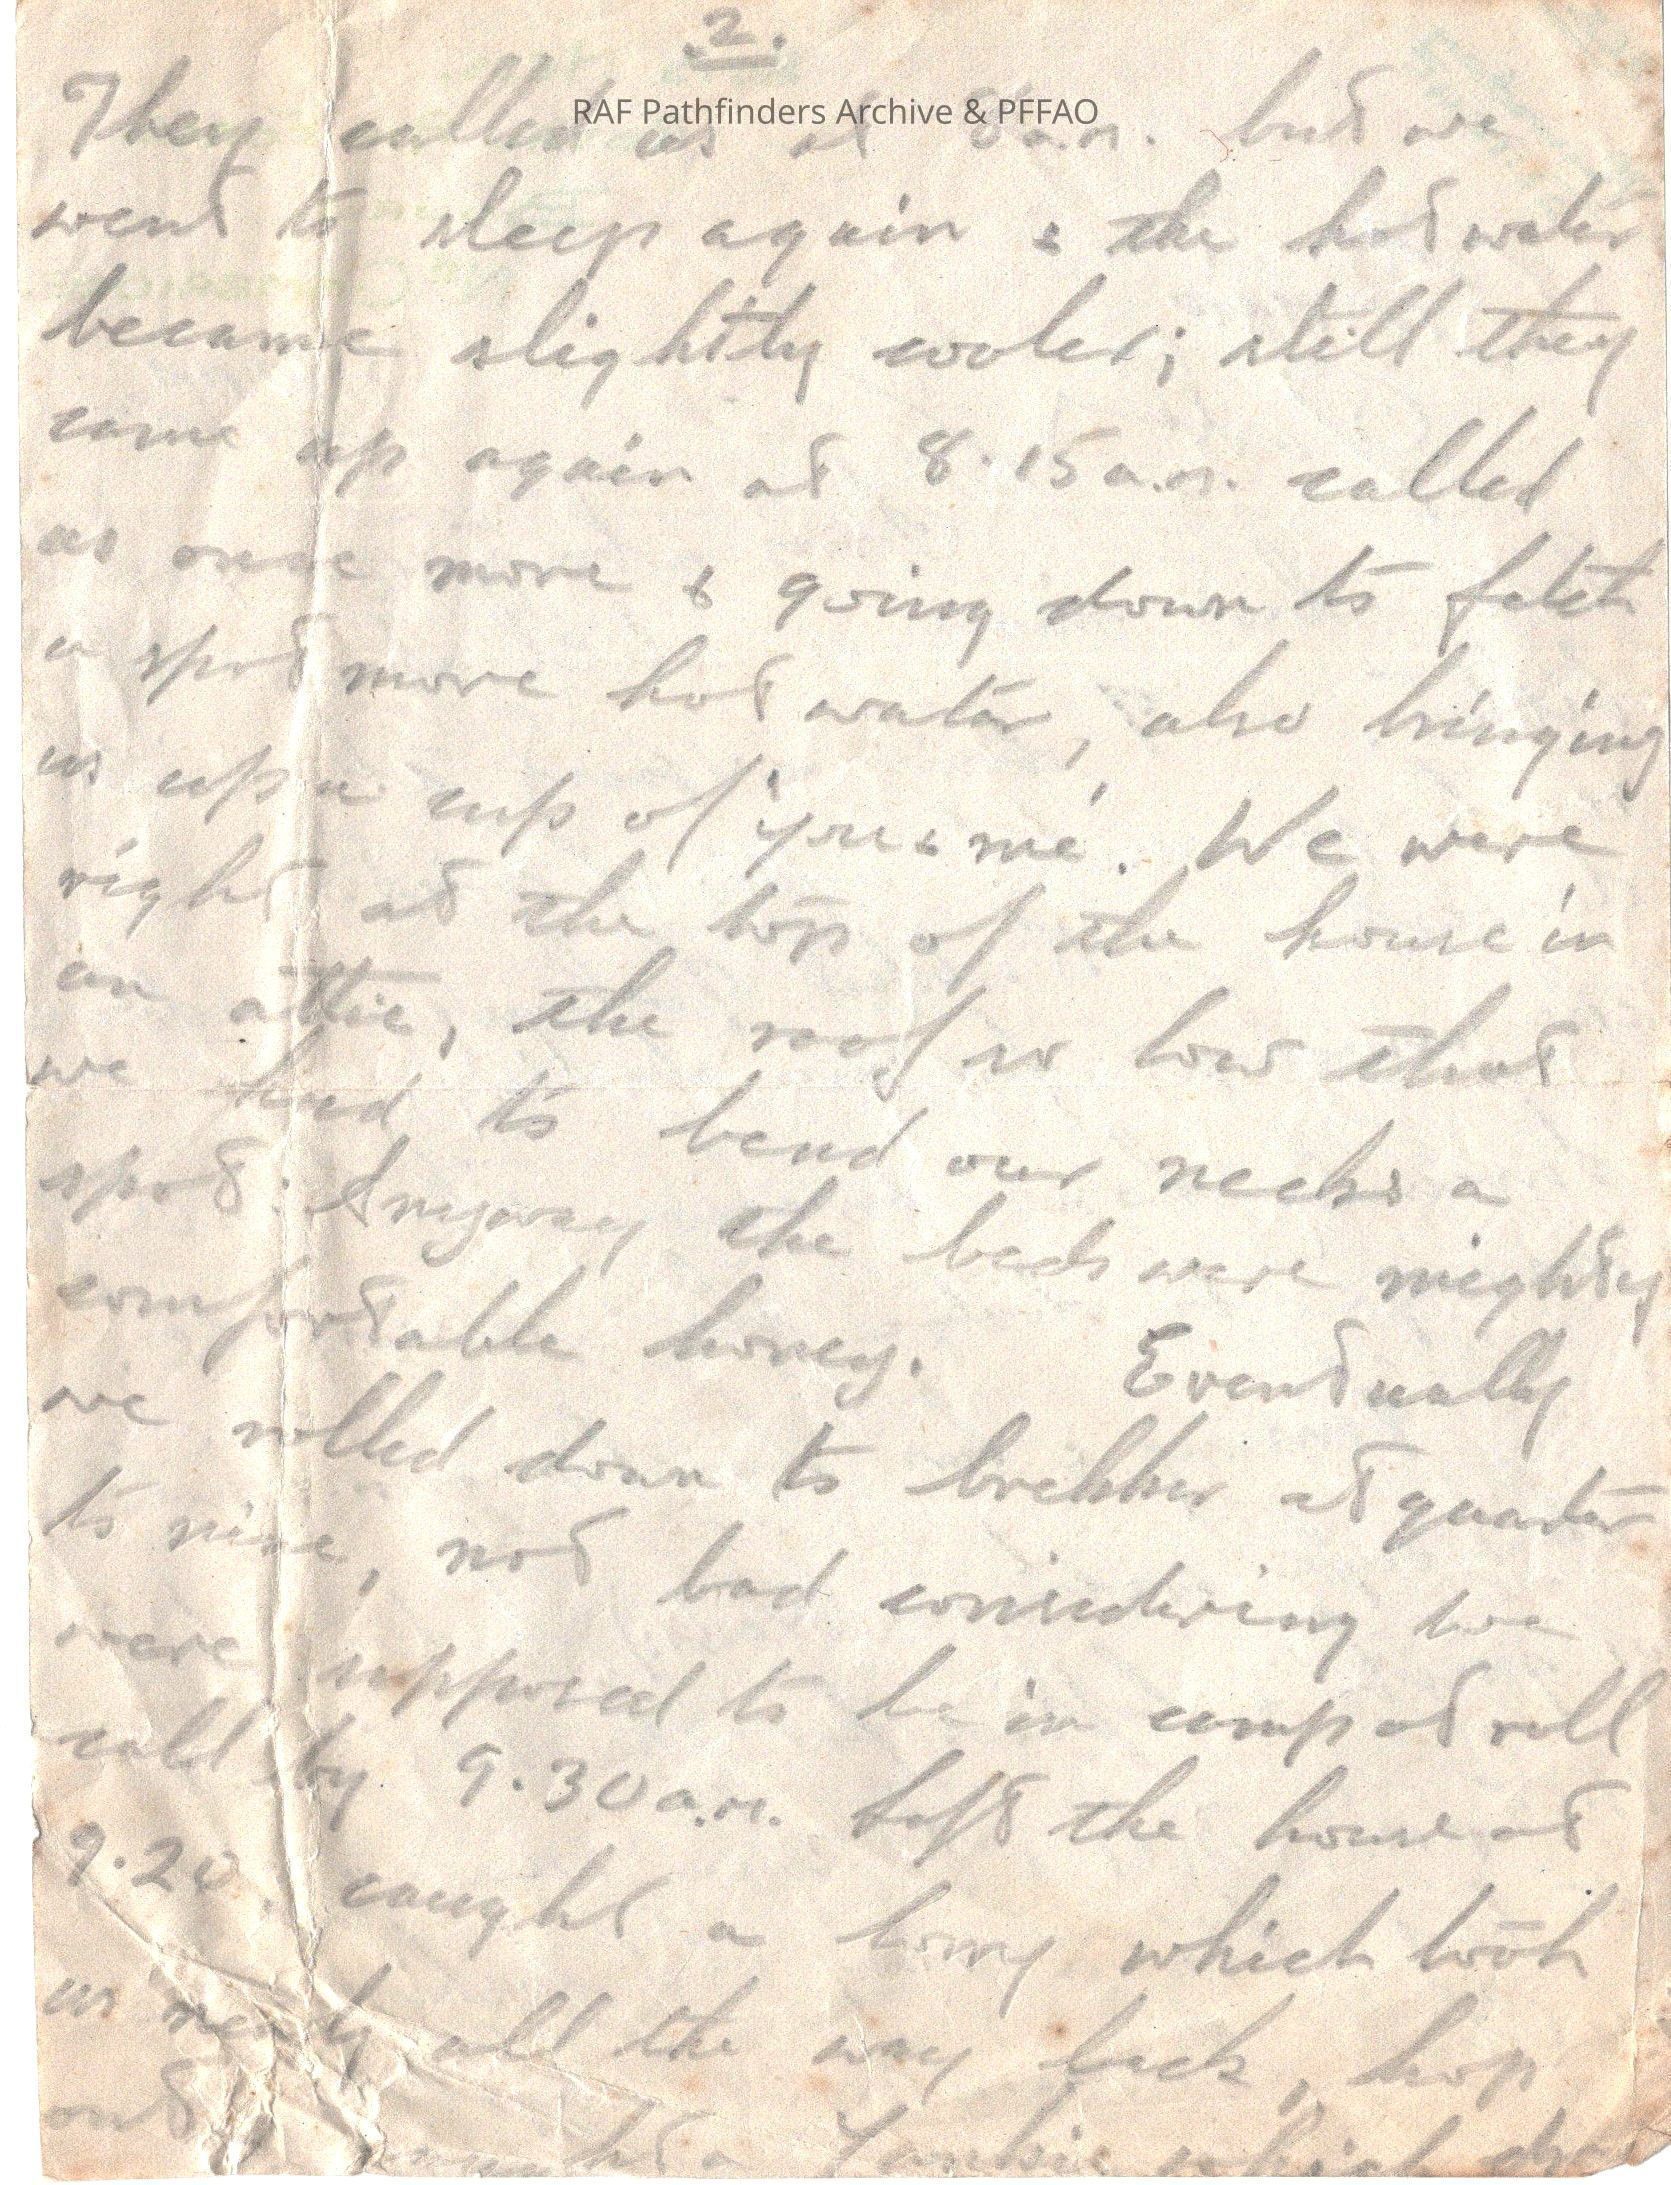 2.
RAF Pathfinders Archive & PFFAO
They called us at 8 a.m. but we
went to sleep again & the hot water
became slightly cooler; still they
came up again at 8.15 a.m. called
us once more & going down to fetch
a spot more hot water, also bringing
us up a cup of 'you & me'. We were
right at the top of the house in
an attic, the roof so low that
we had to bend our necks a
spot. Anyway the beds were mighty
comfortable honey. Eventually
we rolled down to brekker at quarter
to nine, not bad considering we
were supposed to be in camp at roll
call by 9.30 a.m. Left the house at
9.20, caught a lorry which took
us nearly all the way back, hop
out caught a Yankie which